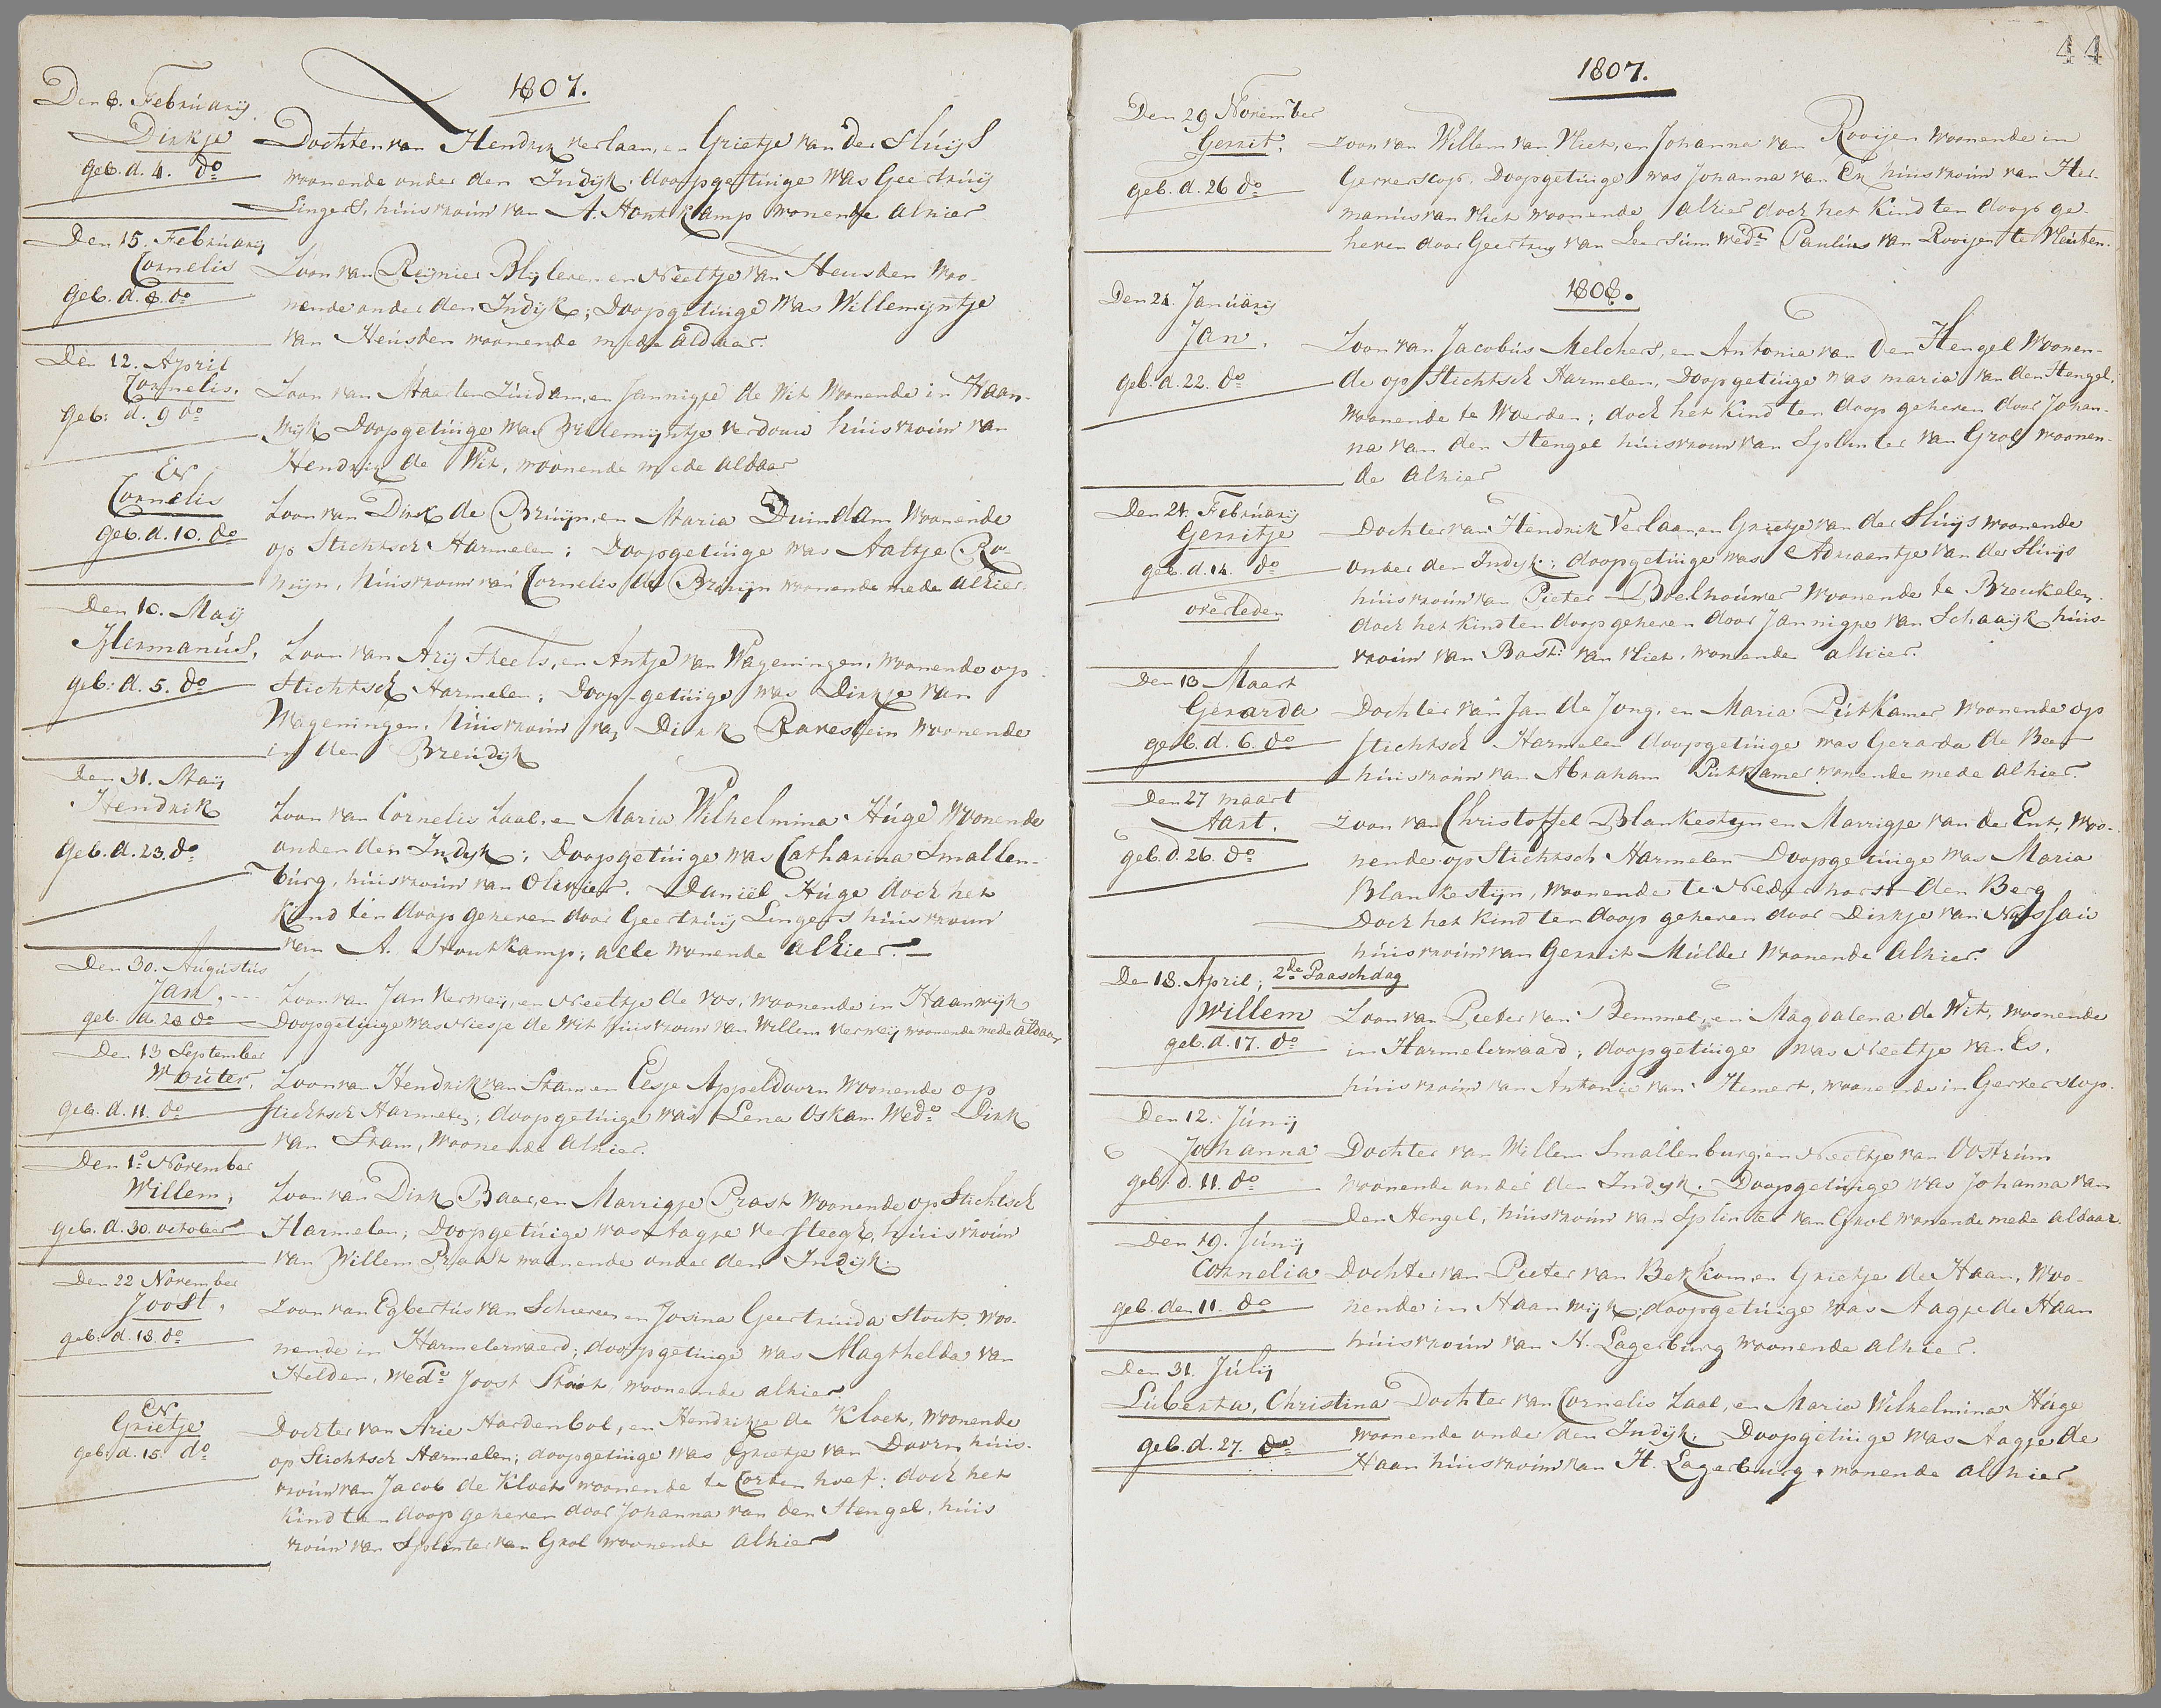 1807.
Den 8. Februarij.
Dirkje Dochter van Hendrik verlaan, en Grietje van der Sluijs
geb. d. 4. do woonende onder den Indijk. doopgetuige was Geertruij
Lingers, huisvrouw van A. Houtkamp wonende alhier
Den 15. Februarij
Cornelis Zoon van Reijnier Blyleven en Neeltje van Heusden woo-
geb. d. 8. do nende onder den Indijk; Doopgetuige was Willemijntje
van Heusden woonende mede aldaar.
Den 12. April
Cornelis. Zoon van Maarten Zuidam, en Jannigje de Wit woonende in Haan-
geb: d. 9 do wijk Doopgetuige was Willemijntje verdouw huisvrouw van
Hendrik de Wit, woonende mede aldaar
En
Cornelis Zoon van Dirk de Bruijn, en Maria Duindam woonende
geb. d. 10. do op Stichtsch Harmelen; Doopgetuige was Aaltje Ro-
meijn, huisvrouw van Cornelis de Bruijn woonende mede alhier.
Den 10. Maij
Hermanus, Zoon van Arij Theels, en Antje van Wageningen, woonende op
geb: d. 5. do Stichtsch Harmelen; Doop-getuige was Dirkje van
Wageningen, huisvrouw van Dirk Ravestein woonende
in den Breudijk
Den 31. Maij
Hendrik Zoon van Cornelis Zaal, en Maria Wilhelmina Huge woonende
geb. d. 23. do onder den Indijk; Doopgetuige was Catharina Smallen-
burg, huisvrouw van Olivier. Daniël Huge doch het
kind ten doop geheven door Geertruij Lingers huisvrouw
van A. Houtkamp; alle wonende alhier.
Den 30. Augustus
Jan. Zoon van Jan Vermeij, en Neeltje de Vos, woonende in Haanwijk
geb. d. 28 do Doopgetuige was Niesje de Wit huisvrouw van Willem Vermeij woonende mede aldaar
Den 13 September
Wouter, Zoon van Hendrik van Stam en Elsje Appeldoorn woonende op
geb. d. 11. do Stichtsch Harmelen; doopgetuige was Lena Oskam Wedo Dirk
van Stam, woonende alhier.
Den 1o November
Willem, Zoon van Dirk Baar, en Marrigje Prast woonende op Stichtsch
geb. d. 30. october Harmelen; Doopgetuige was Aagje Versteegh, huisvrouw
van Willem Praast woonende onder den Indijk.
Den 22 November
Joost, Zoon van Egbertus van Schieveen en Josina Geertruida Stout. woo-
geb: d. 18. do nende in Harmelerwaerd; doopgetuige was Magthelda van
Helden, wedo Joost Stout, woonende alhier
En
Grietje Dochter van Arie Hardenbol, en Hendrikje de Kloet, woonende
geb: d. 15. do op Stichtsch Harmelen; doopgetuige was Grietje van Doorn, huis-
vrouw van Jacob de Kloet woonende te Cortenhoef: doch het
kind ten doop geheven door Johanna van den Hengel, huis
vrouw van Splinter van Grol woonende alhier
44
1807.
Den 29 November
Gerrit, Zoon van Willem van Vliet, en Johanna van Rooijen woonende in
geb. d. 26 do Gerverscop. Doopgetuige was Johanna van Ek huisvrouw van Her-
manus van Vliet woonende alhier doch het kind ten doop ge-
heven door Geertruy van Leersum wede Paulus van Rooijen te Vleuten.
1808.
Den 24. Januarij
Jan. Zoon van Jacobus Melchers, en Antonia van den Hengel woonen-
geb. d. 22. do de op Stichtsch Harmelen, Doopgetuige was maria van den Hengel,
woonende te Woerden; doch het kind ten doop geheven door Johan-
na van den Hengel huisvrouw van Splinter van Grol woonen-
de alhier
Den 21. Februarij
Gerritje Dochter van Hendrik Verlaan, en Grietje van der Sluijs woonende
geb. d. 14. do onder den Indijk; doopgetuige was Adriaantje van der Sluijs
overleden huisvrouw van Pieter Boelhouwer woonende te Breukelen.
doch het kind ten doop geheven door Jannigje van Schaaijk huis-
vrouw van Bast: van Vliet, wonende alhier.
Den 13 Maart
Gerarda Dochter van Jan de Jong, en Maria Putkamer woonende op
geb. d. 6. do Stichtsch Harmelen doopgetuige was Gerarda de Beer
huisvrouw van Abraham Putkamer wonende mede alhier.
Den 27 maart
Aart. Zoon van Christoffel Blankesteijn en Marrigje van de Ent, woo-
geb. d. 26. do nende op Stichtsch Harmelen Doopgetuige was Maria
Blankestijn, woonende te Nederhorst den Berg
Doch het kind ten doop geheven door Dirkje van Nassau
huisvrouw van Gerrit Mulder woonende alhier.
Den 18. April; 2de Paaschdag
Willem Zoon van Pieter van Bemmel, en Magdalena de Wit, woonende
geb. d. 17. do in Harmelerwaard; doopgetuige was Neeltje van Es,
huisvrouw van Antonie van Hemert, woonende in Gerverscop.
Den 12. Junij
Johanna Dochter van Willem Smallenburg en Neeltje van Oostrum
geb. d. 11. do woonende onder den Indijk. Doopgetuige was Johanna van
den Hengel, huisvrouw van Splinter van Grol wonende mede aldaar.
Den 19. Junij
Cornelia Dochter van Pieter van Bekkom, en Grietje de Haan, woo-
geb. den 11. do nende in Haanwijk; doopgetuige was Aagje de Haan
huisvrouw van H. Lagerburg woonende alhier.
Den 31. Julij
Luberta, Christina Dochter van Cornelis Zaal, en Maria Wilhelmina Huge
geb. d. 27. do woonende onder den Indijk. Doopgetuige was Aagje de
Haan huisvrouw van H. Lagerburg, wonende alhier